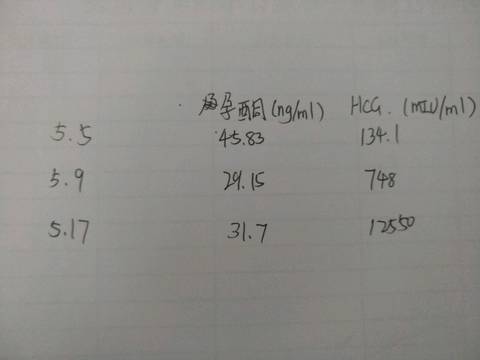 孕酮(ng/ml) HCG. (mIU/ml)
5.5 45.83 134.1
5.9 29.15 748
5.17 31.7 12550